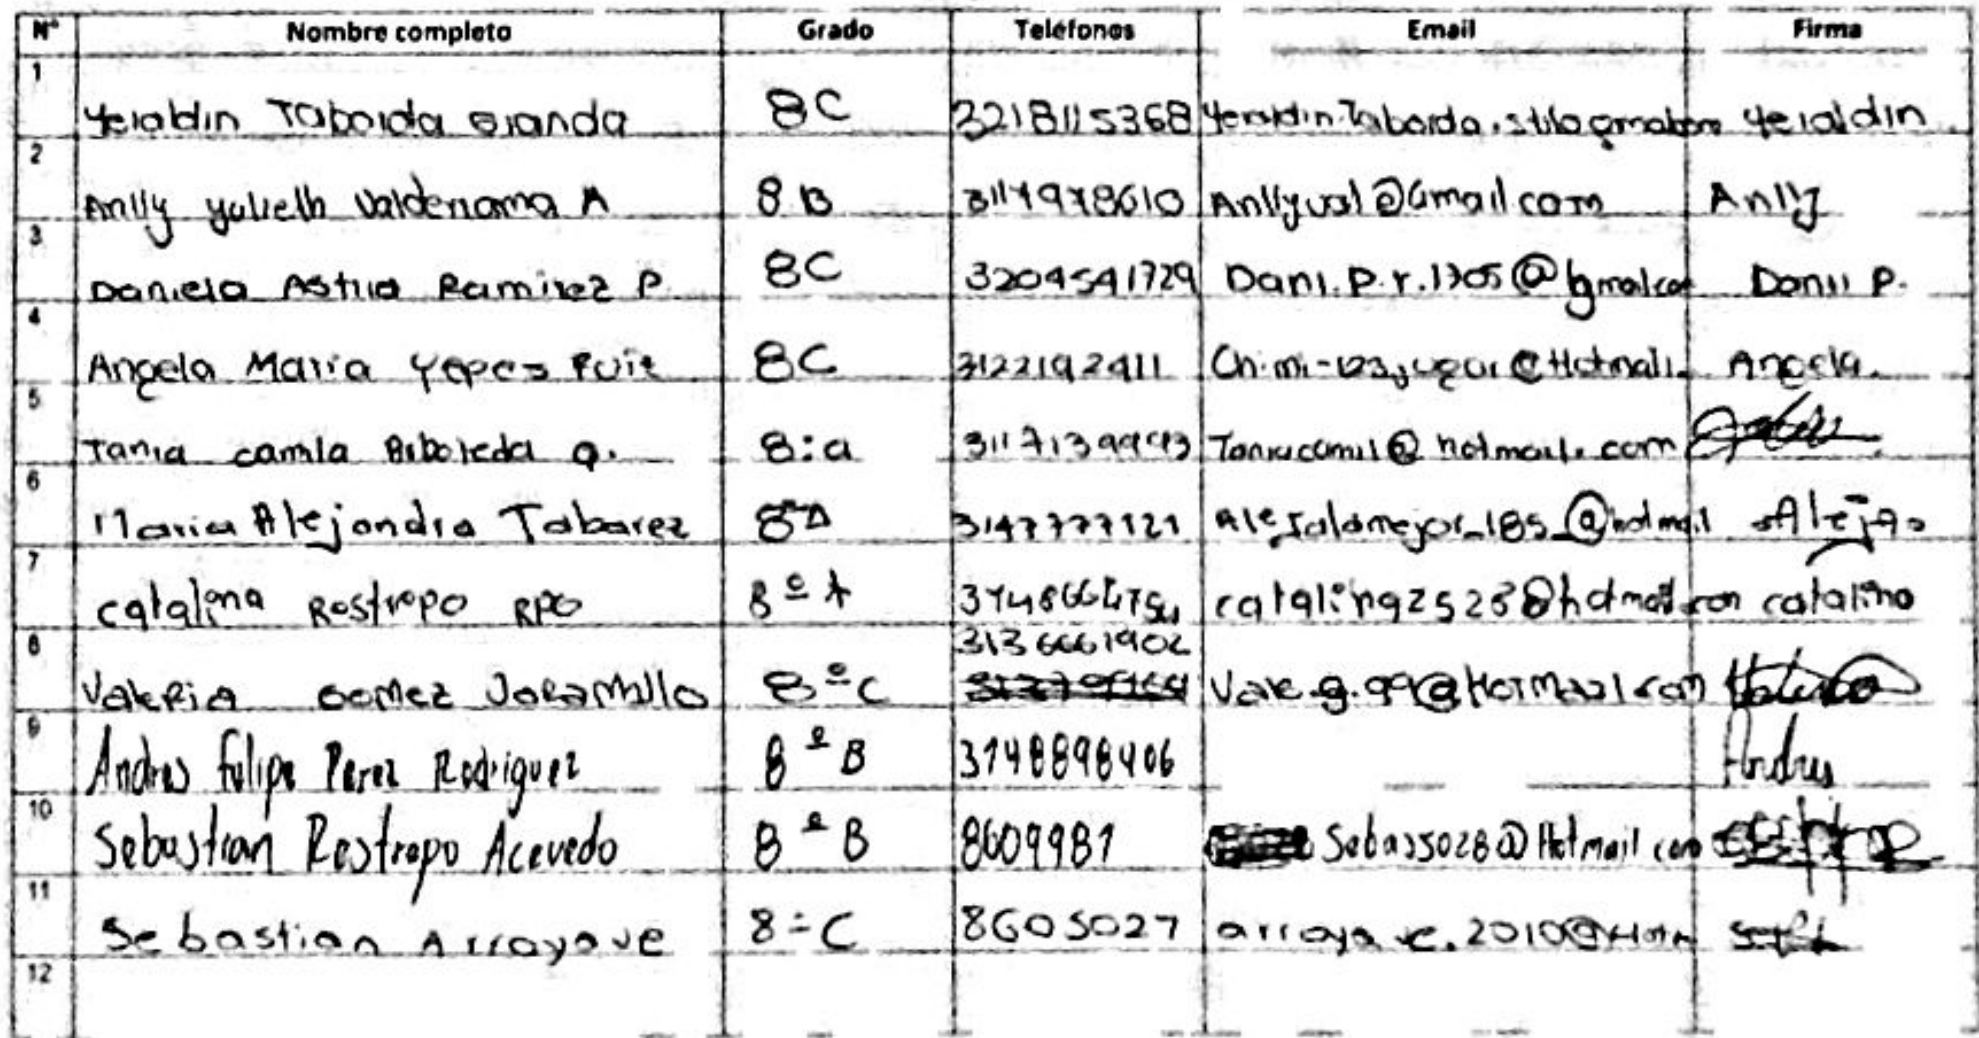 N° Nombre completo Grado Teléfonos Email Firma
1
Yeraldin Taborda Granda 8C 3218115368 Yeraldin Yeraldin
2
Anlly yulieth Valderrama A 8B Anllyval@Gmail com Anlly
3
Daniela Astrid Ramirez P. 8C 3204541729 Dani.P.r.1305@ Danii P.
4
Angela Maria Yepes Ruiz 8C 3122192411 Angela.
5
Tania camila Arboleda Q. 8:a Taniacamil@hotmail.com
6
Maria Alejandra Tabarez 8°A 3147777121 Alejalamejor_185_@hotmail Aleja
7
catalina Restrepo RPO 8°A catalina2528@hotmail.com catalina
8
3136661902
Valeria Gomez Jaramillo 8°C Vale.g.99@Hotmail.com
9
Andres Felipe Perez Rodriguez 8°B 3148898406 Andres
10
Sebastian Restrepo Acevedo 8°B 8609981 Sebas5028@Hotmail com
11
Sebastian Arroyave 8°C 8605027 arroyave.2010@Hotm
12